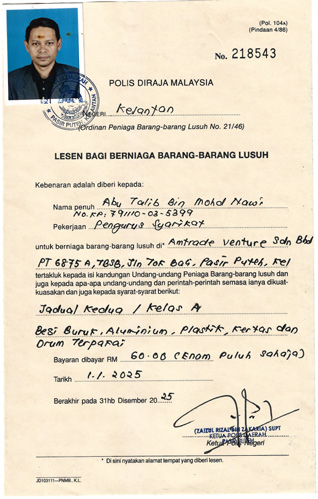 (Pol. 104A)
(Pindaan 4/86)
No. 218543
POLIS DIRAJA MALAYSIA
NEGERI Kelantan
(Ordinan Peniaga Barang-barang Lusuh No. 21/46)
LESEN BAGI BERNIAGA BARANG-BARANG LUSUH
Kebenaran adalah diberi kepada:
Nama penuh Abu Talib Bin Mohd Nawi
No. KP: 791110-03-5399
Pekerjaan Pengurus Syarikat
untuk berniaga barang-barang lusuh di* Amtrade Venture Sdn Bhd
PT 6875 A, TBSB, Jln Tok Bag. Pasir Puteh, Kel
tertakluk kepada isi kandungan Undang-undang Peniaga Barang-barang lusuh dan
juga kepada apa-apa undang-undang dan perintah-perintah semasa ianya dikuat-
kuasakan dan juga kepada syarat-syarat berikut:
Jadual Kedua / Kelas A
Besi Buruk, Aluminium, Plastik, Kertas dan
Drum Terpakai
Bayaran dibayar RM 60.00 (Enam Puluh Sahaja)
Tarikh 1.1.2025
Berakhir pada 31hb Disember 2025
(ZAIZUL RIZAL BIN ZAKARIA) SUPT
KETUA POLIS DAERAH
Ketua Polis Negeri
* Di sini nyatakan alamat tempat yang diberi lesen.
JD103111—PNMB., K.L.
PASIR PUTEH, KELANTAN